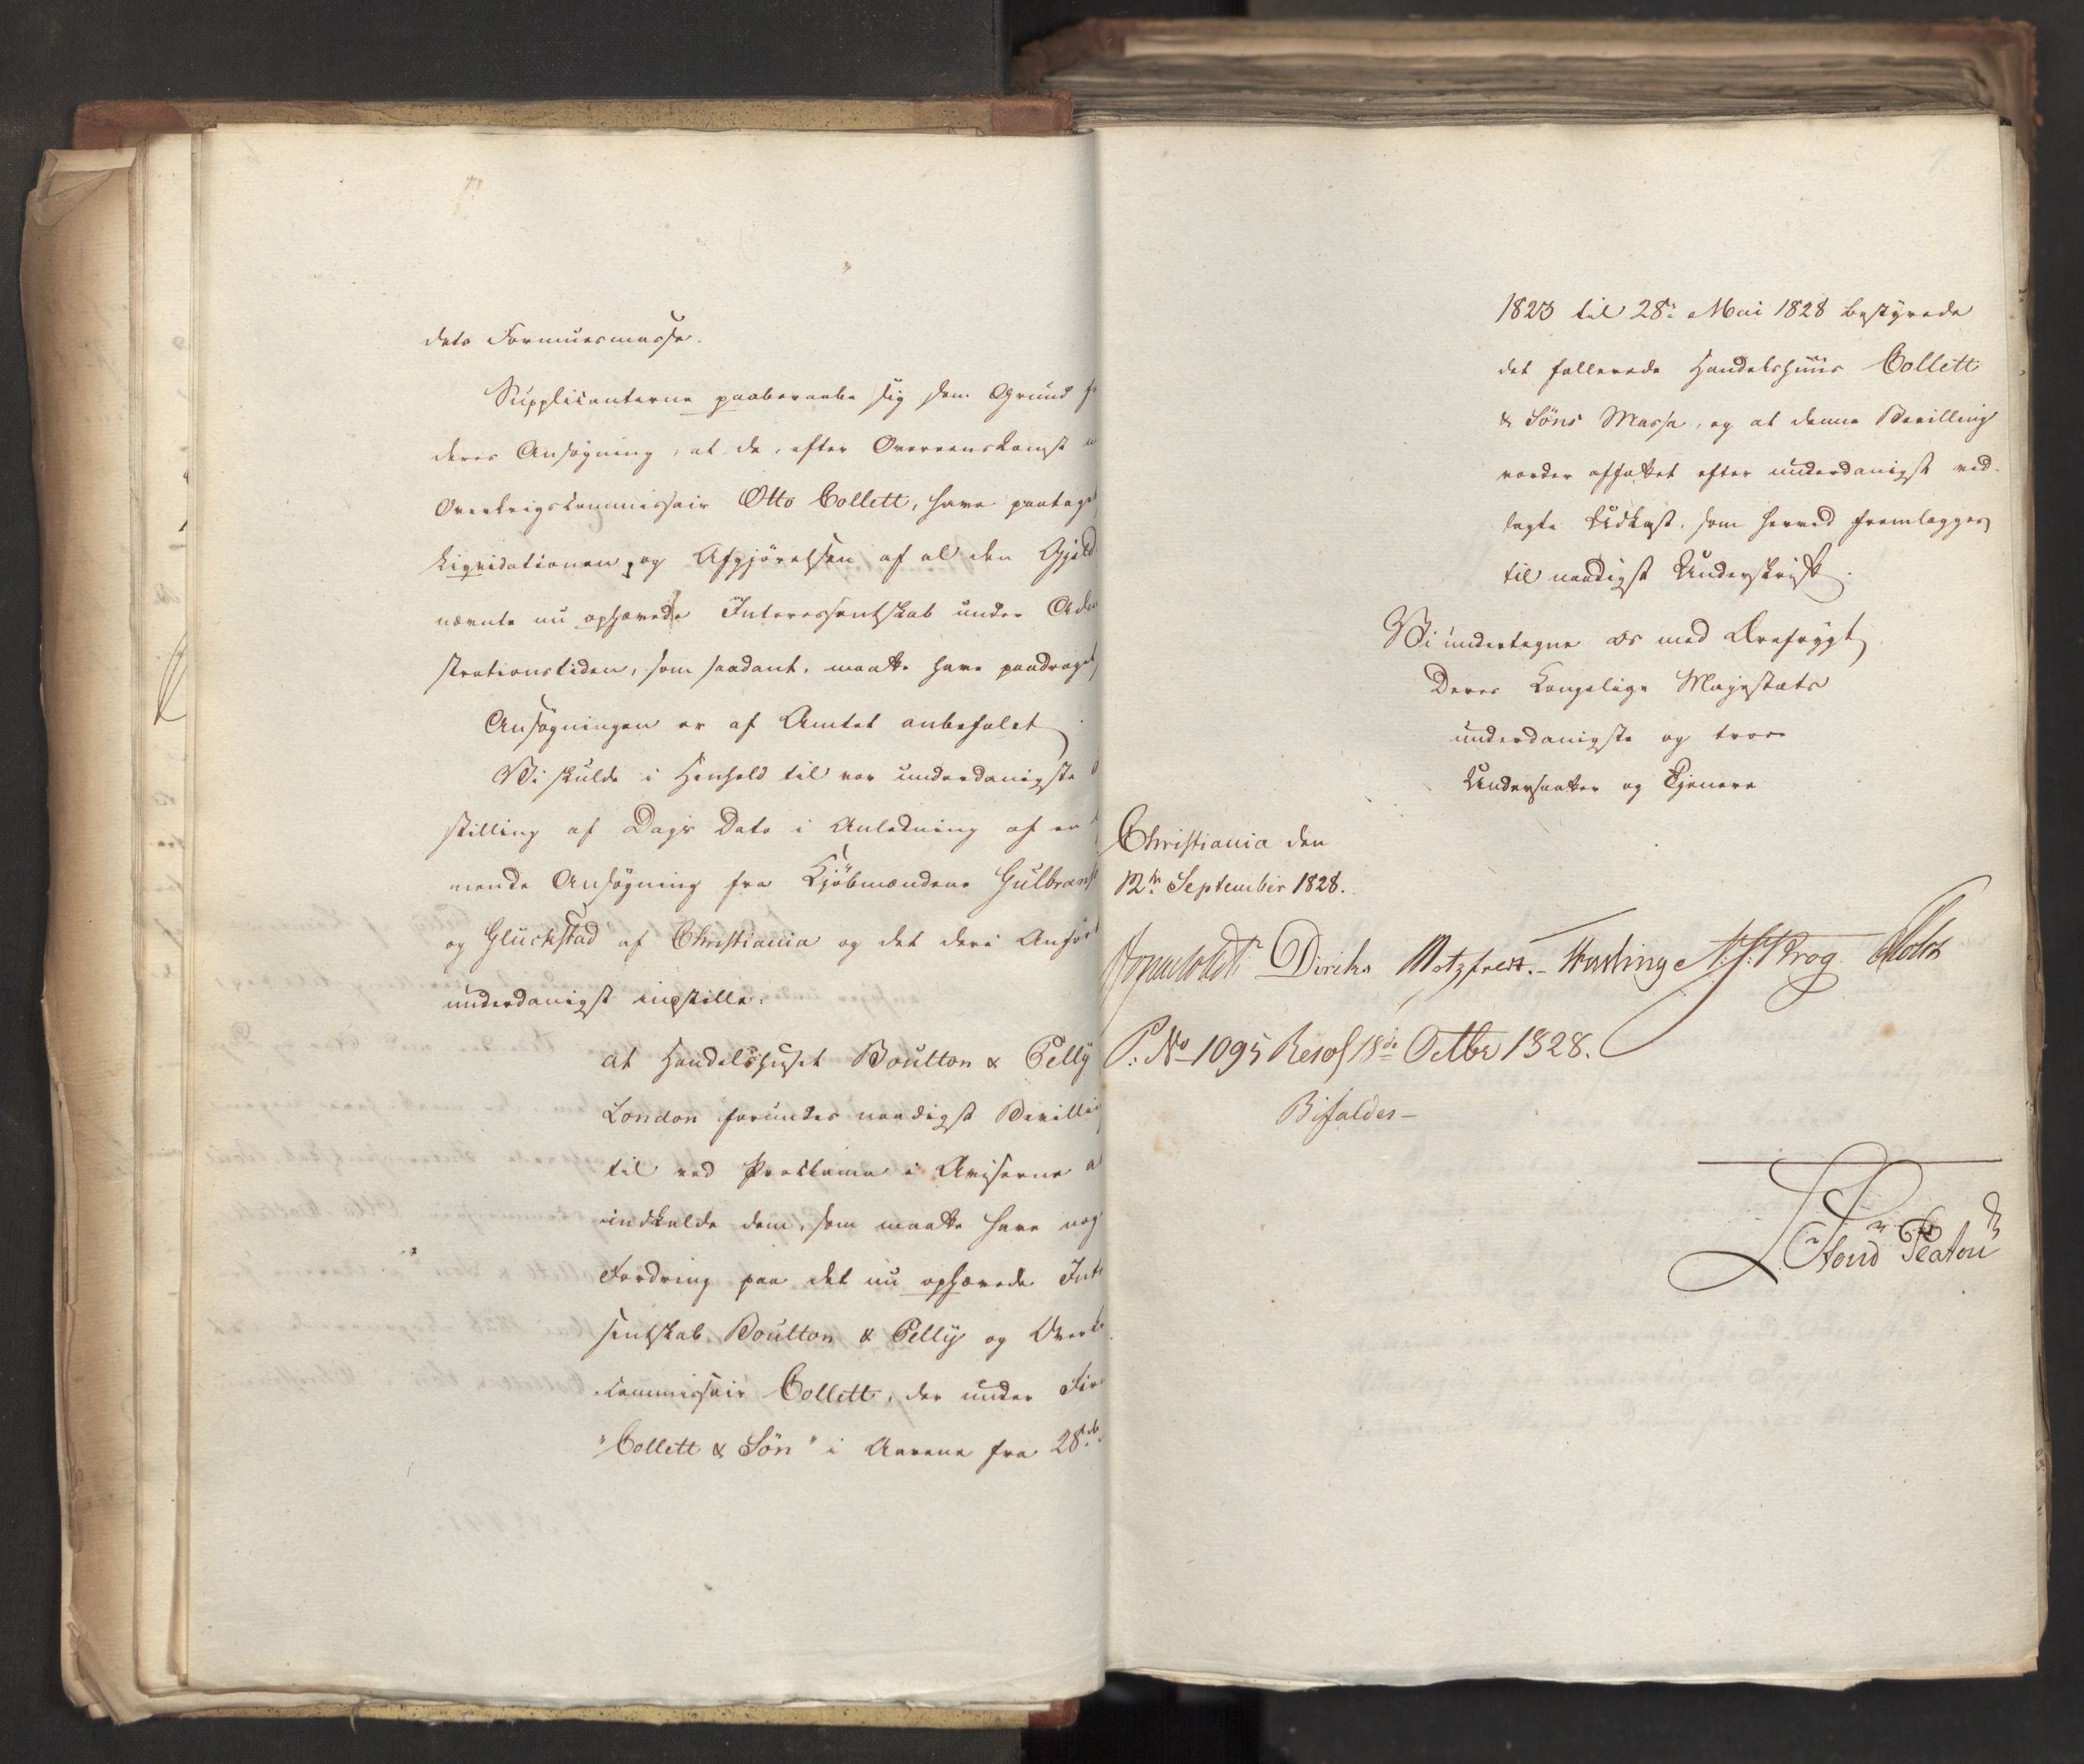 dets Formuesmasse.
Supplicanterne paaberaabe sig som Grund f
deres Ansøgning, at de, efter Overeenskomst
Overkrigskommissair Otto Collett, have paataget
Liqvidationen og Afgjørelsen af al den Gjæld
nævnte nu ophævede Interessentskab under Adm
strationstiden, som saadant, maatte have paadraget
Ansøgningen er af Amtet anbefalet
Vi skulde i Henhold til vor underdanigste
stilling af Dags Dato i Anledning af en
nende Ansøgning fra Kjøbmændene Gulbrans
og Glückstad af Christiania og det deri Anført
underdanigst indstille:
at Handelshuset Boulton & Pelly
London forundes naadigst Bevillin
til ved Proclama i Aviserne a
indkalde dem, som maatte have nog
Fordring paa det nu ophævede Inte
sentskab Boulton & Pelly og Overk
commissair Collett, der under Fir
"Collett & Søn" i Aarene fra 28de
1823 til 28: Mai 1828 bestyrede
det fallerede Handelshuus Collett
& Søns Masse, og at denne Bevilling
vorder affattet efter underdanigst ved-
lagte Udkast, som herved fremlægges
til naadigst Underskrift.
Vi undertegne os med Ærefrygt
Deres Kongelige Majestæts
underdanigste og troe
Undersaatter og Tjenere
Christiania den
12te September 1828.
Diriks Motzfeldt. Fasting Krog Holst
P: No 1095 Resol 18de Octbr 1828.
Bifaldes-